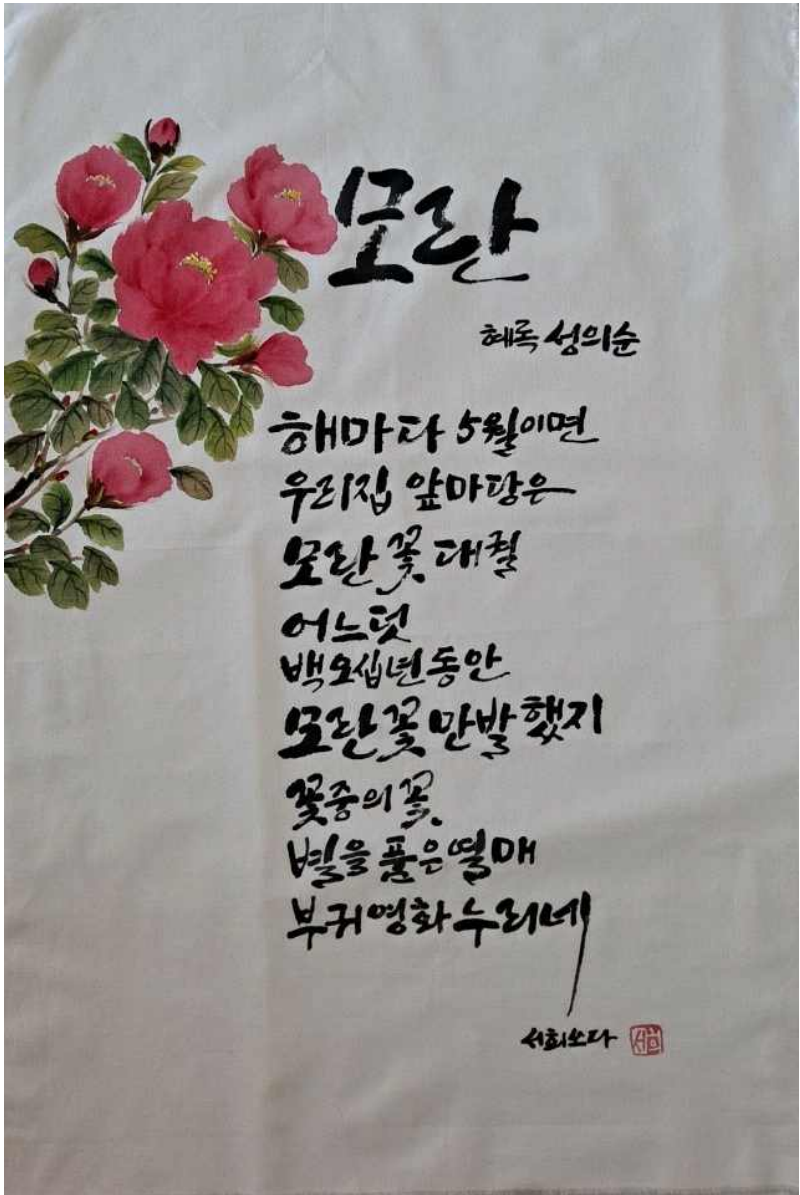 모란
혜록 성의순
해마다 5월이면
우리집 앞마당은
모란꽃 대궐
어느덧
백오십년동안
모란꽃 만발했지
꽃중의 꽃
별을 품은 열매
부귀영화 누리네
서희쓰다